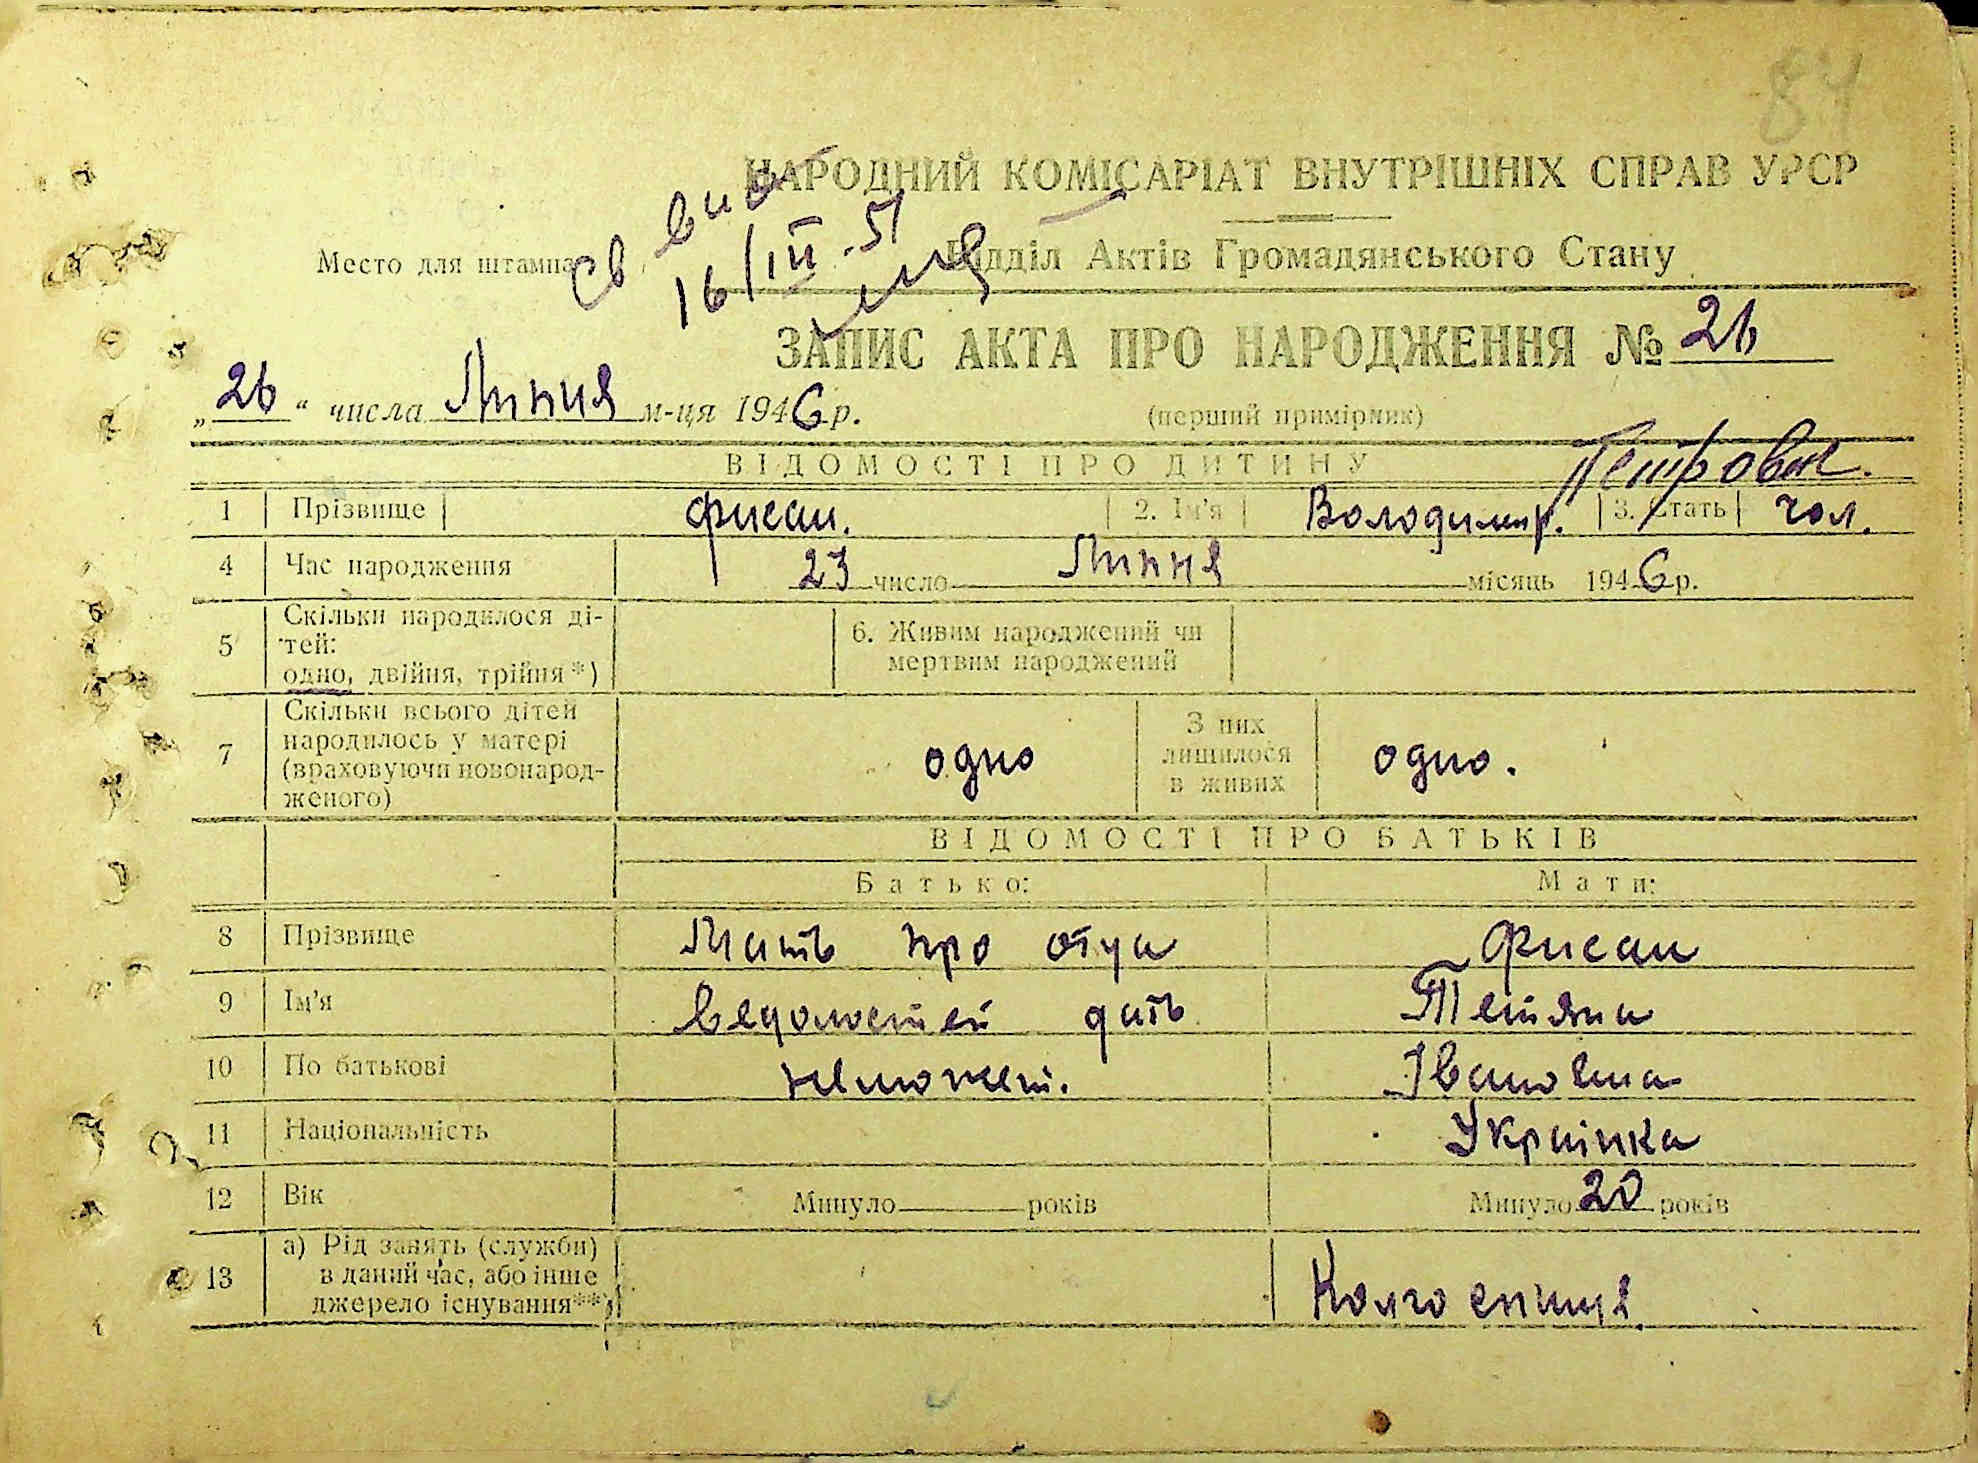 84
НАРОДНИЙ КОМІСАРІАТ ВНУТРІШНІХ СПРАВ УРСР
Відділ Актів Громадянського Стану
Место для штампа
св вид
16/III-51
ЗАПИС АКТА ПРО НАРОДЖЕННЯ № 26
„26“ числа Липня м-ця 1946 р.
(перший примірник)
ВІДОМОСТІ ПРО ДИТИНУ
Петрович.
1 Прізвище Фисан. 2. Ім'я Володимир. 3. Стать чол.
4 Час народження 23 число Липня місяць 1946 р.
5 Скільки народилося дітей: одно, двійня, трійня*) 6. Живим народжений чи мертвим народжений
7 Скільки всього дітей народилось у матері (враховуючи новонародженого) одно З них лишилося в живих одно.
ВІДОМОСТІ ПРО БАТЬКІВ
Батько: Мати:
8 Прізвище Мать про отца Фисан
9 Ім'я ведомостей дать Тетяна
10 По батькові неможет. Івановна
11 Національність Українка
12 Вік Минуло років Минуло 20 років
13 а) Рід занять (служби) в даний час, або інше джерело існування**) Колгоспниця